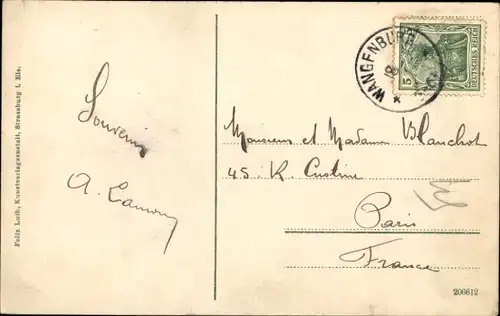 WANGENBURG
DEUTSCHES REICH
5
Felix Luib, Kunstverlagsanstalt, Strassburg i. Els.
Souvenir
A.
Messieurs et Madame Blanchot
45. R. Custine
Paris
France
206612